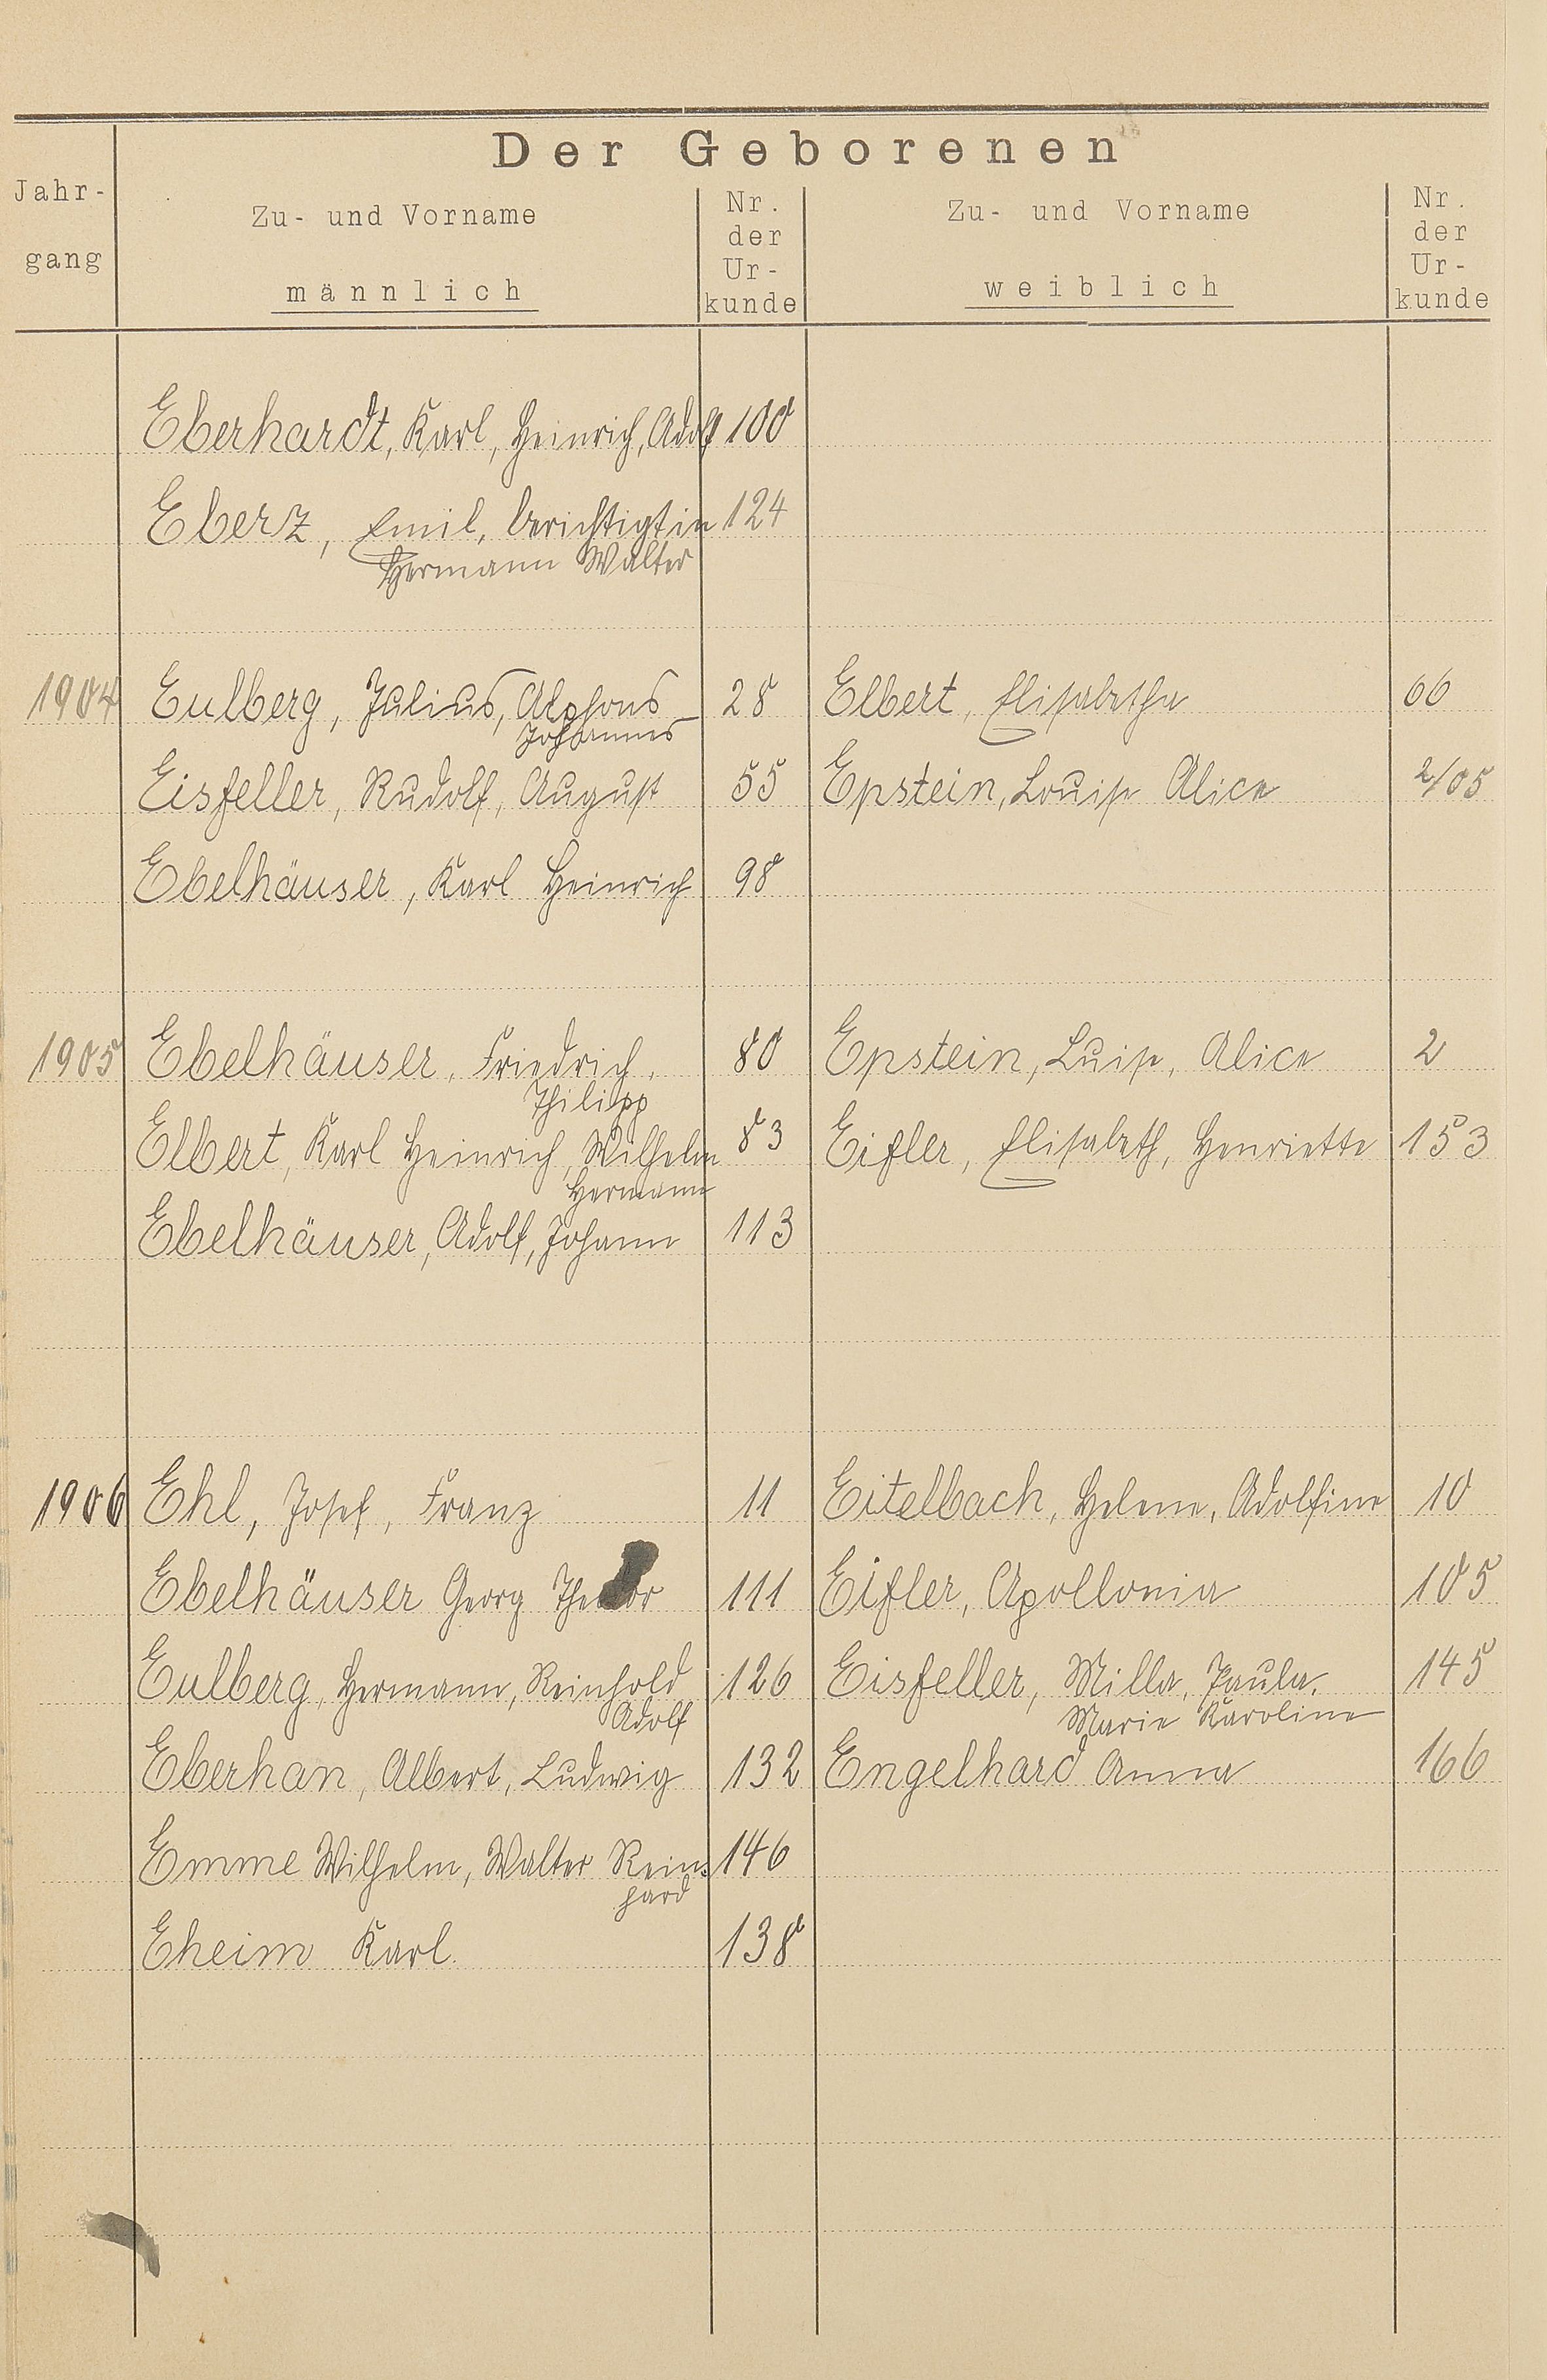 Der Geborenen
Jahr-
gang
Zu- und Vorname
männlich
Nr.
der
Ur-
kunde
Zu- und Vorname
weiblich
Nr.
der
Ur-
kunde
Eberhardt, Karl, Heinrich, Adolf 100
Eberz, Emil, berichtigt in 124
Hermann Walter
1904 Eulberg, Julius, Alphons 28 Elbert, Elisabetha 66
Johannes
Eisfeller, Rudolf, August 55 Epstein, Louise Alice 2/05
Ebelhäuser, Karl Heinrich 98
1905 Ebelhäuser, Friedrich, 80 Epstein, Luise, Alice 2
Philipp
Elbert, Karl Heinrich, Wilhelm 83 Eifler, Elisabeth, Henriette 153
Hermann
Ebelhäuser, Adolf, Johann 113
1906 Ehl, Josef, Franz 11 Eitelbach, Helene, Adolfine 10
Ebelhäuser Georg Theodor 111 Eifler, Apollonia 105
Eulberg, Hermann, Reinhold 126 Eisfeller, Milla, Paula, 145
Adolf Marie Karoline
Eberhan, Albert, Ludwig 132 Engelhard Anna 166
Emme Wilhelm, Walter Rein- 146
hard
Eheim Karl. 138